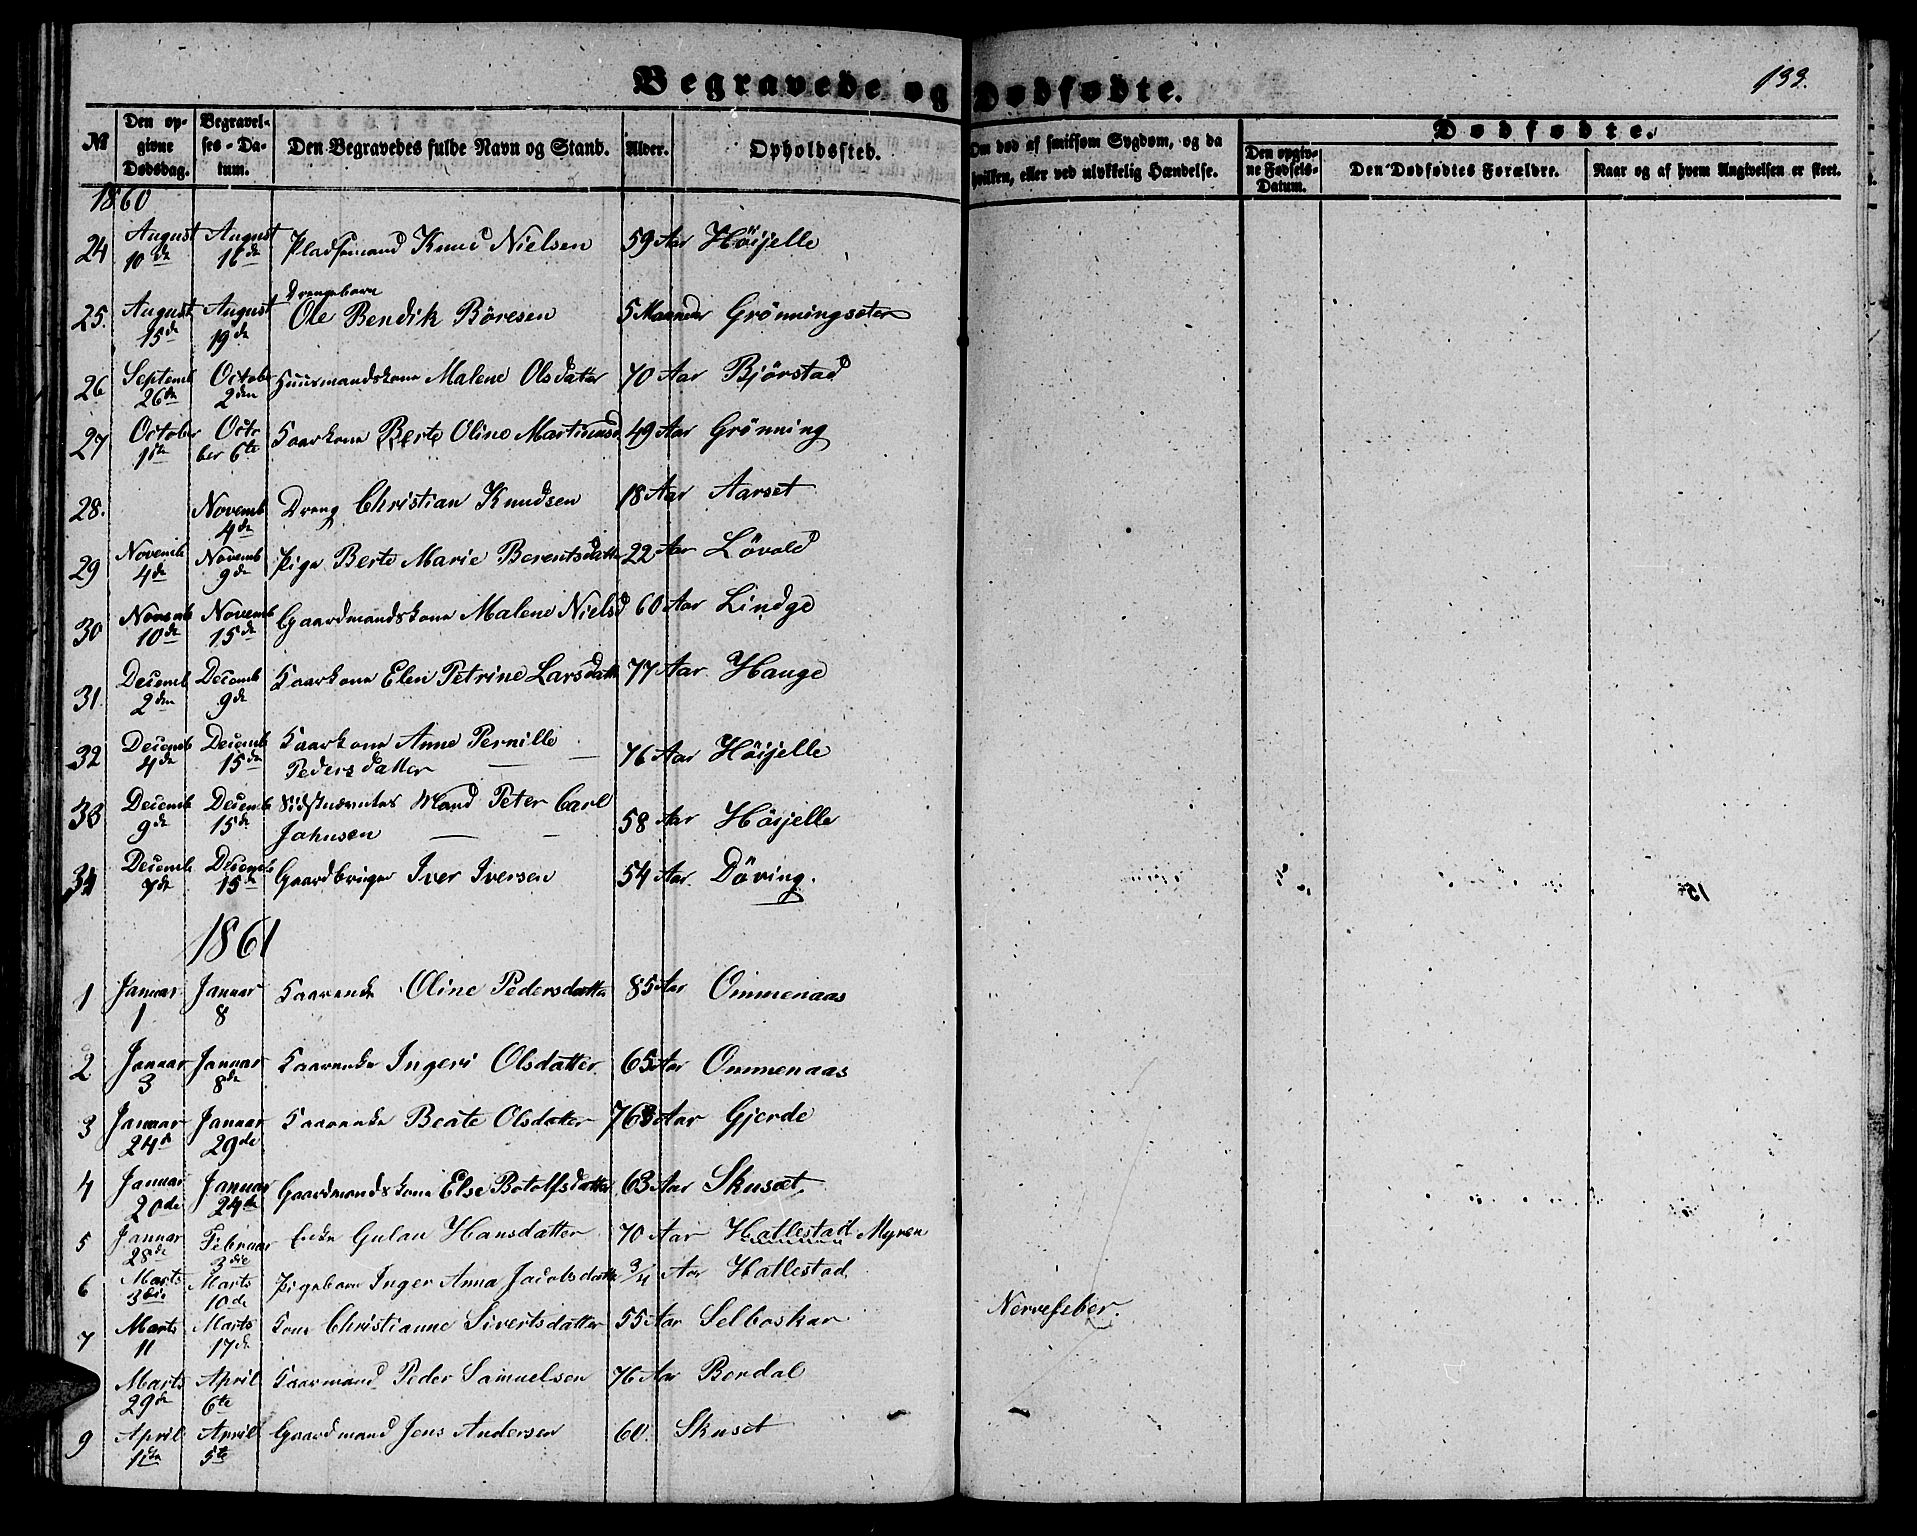 Begravede og Dødfødte.
133.
No
Den opgivne Dødsdag.
Begravelses-Datum.
Den Begravedes fulde Navn og Stand.
Alder.
Opholdssted.
Om død af smitsom Sygdom, og da hvilken, eller ved ulykkelig Hændelse.
Dødfødte.
Den opgivne Fødsels-Datum.
Den Dødfødtes Forældre.
Naar og af hvem Angivelsen er skeet.
1860
24 August 10de August 16de Pladsmand Knud Nielsen 59 Aar Höijelle
25. August 15de August 19de Drengebarn Ole Bendik Böresen 5 Maaneder Grönningseter
26 Septemb 26de Octobr 2den Huusmandskone Malene Olsdatter 70 Aar Bjørstad
27 October 1ste October 6te Kaarkone Berte Oline Martinusd 49 Aar Grönning
28. Novemb 4de Dreng Christian Knudsen 18 Aar Aarset
29 Novemb 4de Novemb 9de Pige Berte Marie Berentsdatter 22 Aar Lövold
30 Novemb 10de Novemb 15de Gaardmandskone Malene Nielsd 60 Aar Lindge
31. Decemb 2den Decemb 9de Kaarkone Elen Petrine Larsdatt 77 Aar Hauge
32 Decemb 4de Decemb 15de Kaarkone Anne Pernille
Pedersdatter — — 76 Aar Höijelle
33 Decemb 9de Decemb 15de Sidstnævntes Mand Peter Carl
Johnsen — — 58 Aar Höijelle
34 Decemb 7de Decemb 15de Gaardbruger Iver Iversen 54 Aar. Döving.
1861
1 Januar 1 Januar 8 Kaarenke Oline Pedersdatter 85 Aar Ommenaas
2 Januar 3 Januar 8de Kaarenke Ingeri Olsdatter 65 Aar Ommenaas
3 Januar 24de Januar 29de Kaarenke Beate Olsdatter 76 Aar Gjerde
4 Januar 20de Januar 24de Gaardmandskone Else Botolfsdatter 63 Aar Skuset
5 Januar 28de Februar 3die Enke Gulau Hansdatter 70 Aar Hatlestad Myren
6 Marts 3die Marts 10de Pigebarn Inger Anna Jacobsdatter 3/4 Aar Hatlestad
7 Marts 11 Marts 17de Kone Christianne Sivertsdatter 55 Aar Selboskar Nervefeber.
Marts 29de April 6te Kaarmand Peder Samuelsen 76 Aar Bordal
9 April 1ste April 5te Gaardmand Jens Andersen 60. Skuset